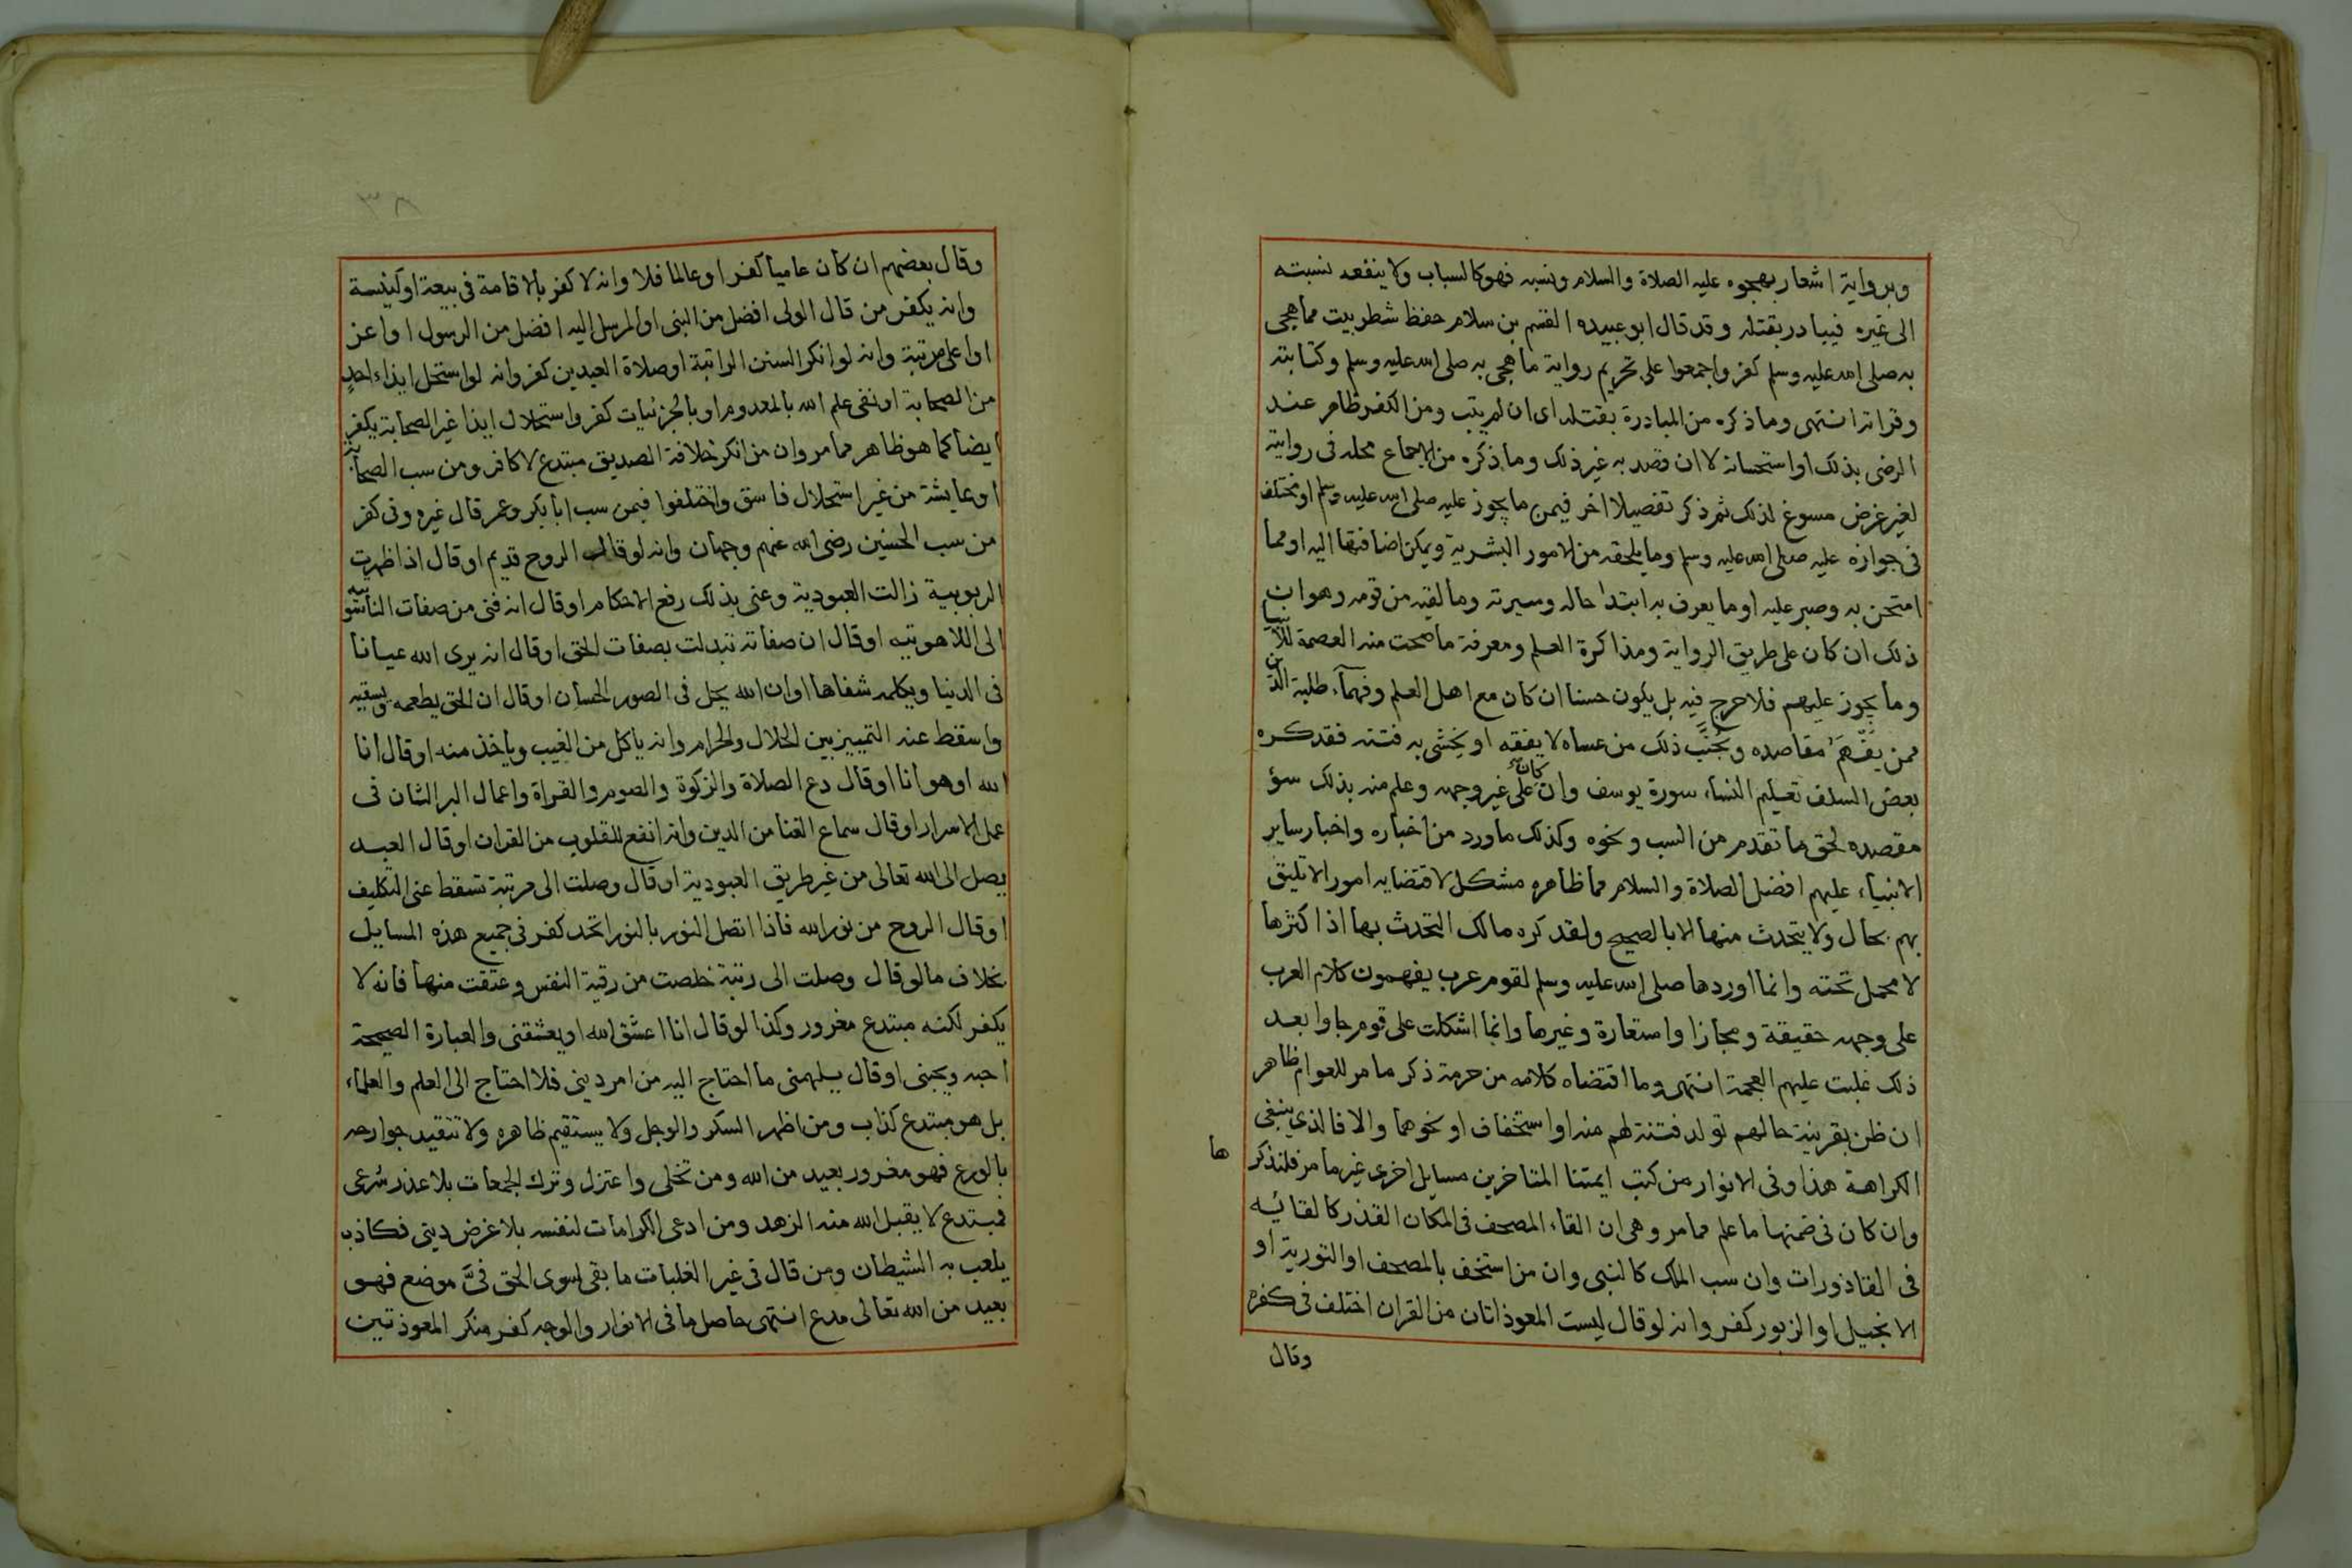 وبرواية اشعار بهجوه عليه الصلاة والسلام ونسبه فهو كالسباب ولا ينفعه نسبته
الى غيره فيبادر بقتله وقد قال ابو عبيده القسم بن سلام حفظ شطر بيت مما هجى
به صلى الله عليه وسلم كفر واجمعوا على تحريم رواية ما هجى به صلى الله عليه وسلم وكتابته
وقراته انتهى وما ذكره من المبادرة بقتله اى ان لم يتب ومن الكفر ظاهر عند
الرضى بذلك او استحسانه لا ان قصد به غير ذلك وما ذكره من الاجماع محله فى رواية
لغير غرض مسوغ لذلك ثم ذكر تفصيلا اخر فيمن ما يجوز عليه صلى الله عليه وسلم او مختلف
فى جوازه عليه صلى الله عليه وسلم وما يلحقه من الامور البشرية ويمكن اضافتها اليه او مما
امتحن به وصبر عليه او ما يعرف به ابتدا حاله وسيرته وما لقيه من قومه وهو ان
ذلك ان كان على طريق الرواية ومذاكرة العلم ومعرفة ما صحت منه العصمة للأنبيا
وما يجوز عليهم فلا حرج فيه بل يكون حسنا ان كان مع اهل العلم وفهمآء طلبة الدين
ممن يفهم مقاصده ويجنب ذلك من عساه لا يفقه او يخشى به فتنه فقد كره
بعض السلف تعليم النساء سورة يوسف وان كان على غير وجهه وعلم منه بذلك سؤ
مقصده لحق ما تقدم من السب ونحوه وكذلك ما ورد من اخباره واخبار ساير
الانبياء عليهم افضل الصلاة والسلام مما ظاهره مشكل لاقتضايه امور الا تليق
بهم بحال ولا يتحدث منها الا بالصحيح ولقد كره مالك التحدث بها اذ اكثرها
لا محمل تحته وانما اوردها صلى الله عليه وسلم لقوم عرب يفهمون كلام العرب
على وجهه حقيقة ومجازا واستعارة وغيرها وانما اشكلت على قوم جاوا بعد
ذلك غلبت عليهم العجمة انتهى وما اقتضاه كلامه من حرمة ذكر ما مر للعوام ظاهر
ان ظن بقرينة حالهم تولد فتنة لهم منه او استخفاف او نحوهما والا فالذي ينبغى
الكراهة هذا وفى الانوار من كتب ايمتنا المتاخرين مسايل اخرى غير ما مر فلنذكر
ها
وان كان فى ضمنها ما علم مما مر وهى ان القاء المصحف فى المكان القذر كالقائه
فى القاذورات وان سب الملك كالنبى وان من استخف بالمصحف او التورية او
الانجيل او الزبور كفر وانه لو قال ليست المعوذاتان من القران اختلف فى كفره
وقال
٣٨
وقال بعضهم ان كان عاميا كفر او عالما فلا وانه لا كفر بالاقامة فى بيعة او كنيسة
وانه يكفر من قال الولى افضل من النبى او المرسل اليه افضل من الرسول او اعز
او اعلى مرتبة وانه لو انكر السنن الراتبة او صلاة العيدين كفر وانه لو استحل ايذاء احد
من الصحابة او نفى علم الله بالمعدوم او بالجزئيات كفر واستحلال ايذا غير الصحابة يكفر
ايضا كما هو ظاهر مما مر وان من انكر خلافة الصديق مبتدع لا كافر ومن سب الصحابة
او عايشة من غير استحلال فاسق واختلفوا فيمن سب ابا بكر وعمر قال غيره وفى كفر
من سب الحسنين رضى الله عنهم وجهان وانه لو قال الروح قديم او قال اذا ظهرت
الربوبية زالت العبودية وعنى بذلك رفع الاحكام او قال انه فنى من صفات الناسوتيه
الى اللاهوتيه او قال ان صفاته تبدلت بصفات الحق او قال انه يرى الله عيانا
فى الدنيا ويكلمه شفاها او ان الله يحل فى الصور الحسان او قال ان الحق يطعمه ويسقيه
واسقط عنه التمييز بين الحلال والحرام وانه ياكل من الغيب وياخذ منه او قال انا
الله او هو انا او قال دع الصلاة والزكوة والصوم والقراة واعمال البر الشان فى
عمل الاسرار او قال سماع الغنا من الدين وانه انفع للقلوب من القران او قال العبد
يصل الى الله تعالى من غير طريق العبودية او قال وصلت الى مرتبة تسقط عنى التكليف
او قال الروح من نور الله فاذا اتصل النور بالنور اتحد كفر فى جميع هذه المسايل
بخلاف ما لو قال وصلت الى رتبة خلصت من رقية النفس وعتقت منها فانه لا
يكفر لكنه مبتدع مغرور وكذا لو قال انا اعشق الله او يعشقنى والعبارة الصحيحة
احبه ويحبنى او قال يلهمنى ما احتاج اليه من امر دينى فلا احتاج الى العلم والعلماء
بل هو مبتدع كذاب ومن اظهر السكر والوجل ولا يستقيم ظاهره ولا تتقيد جوارحه
بالورع فهو مغرور بعيد من الله ومن تخلى واعتزل وترك الجمعات بلا عذر شرعى
فمبتدع لا يقبل الله منه الزهد ومن ادعى الكرامات لنفسه بلا غرض دينى فكاذب
يلعب به الشيطان ومن قال فى غير الغلبات ما بقى لسوى الحق فىّ موضع فهو
بعيد من الله تعالى مدع انتهى حاصل ما فى الانوار والوجه كفر منكر المعوذتين